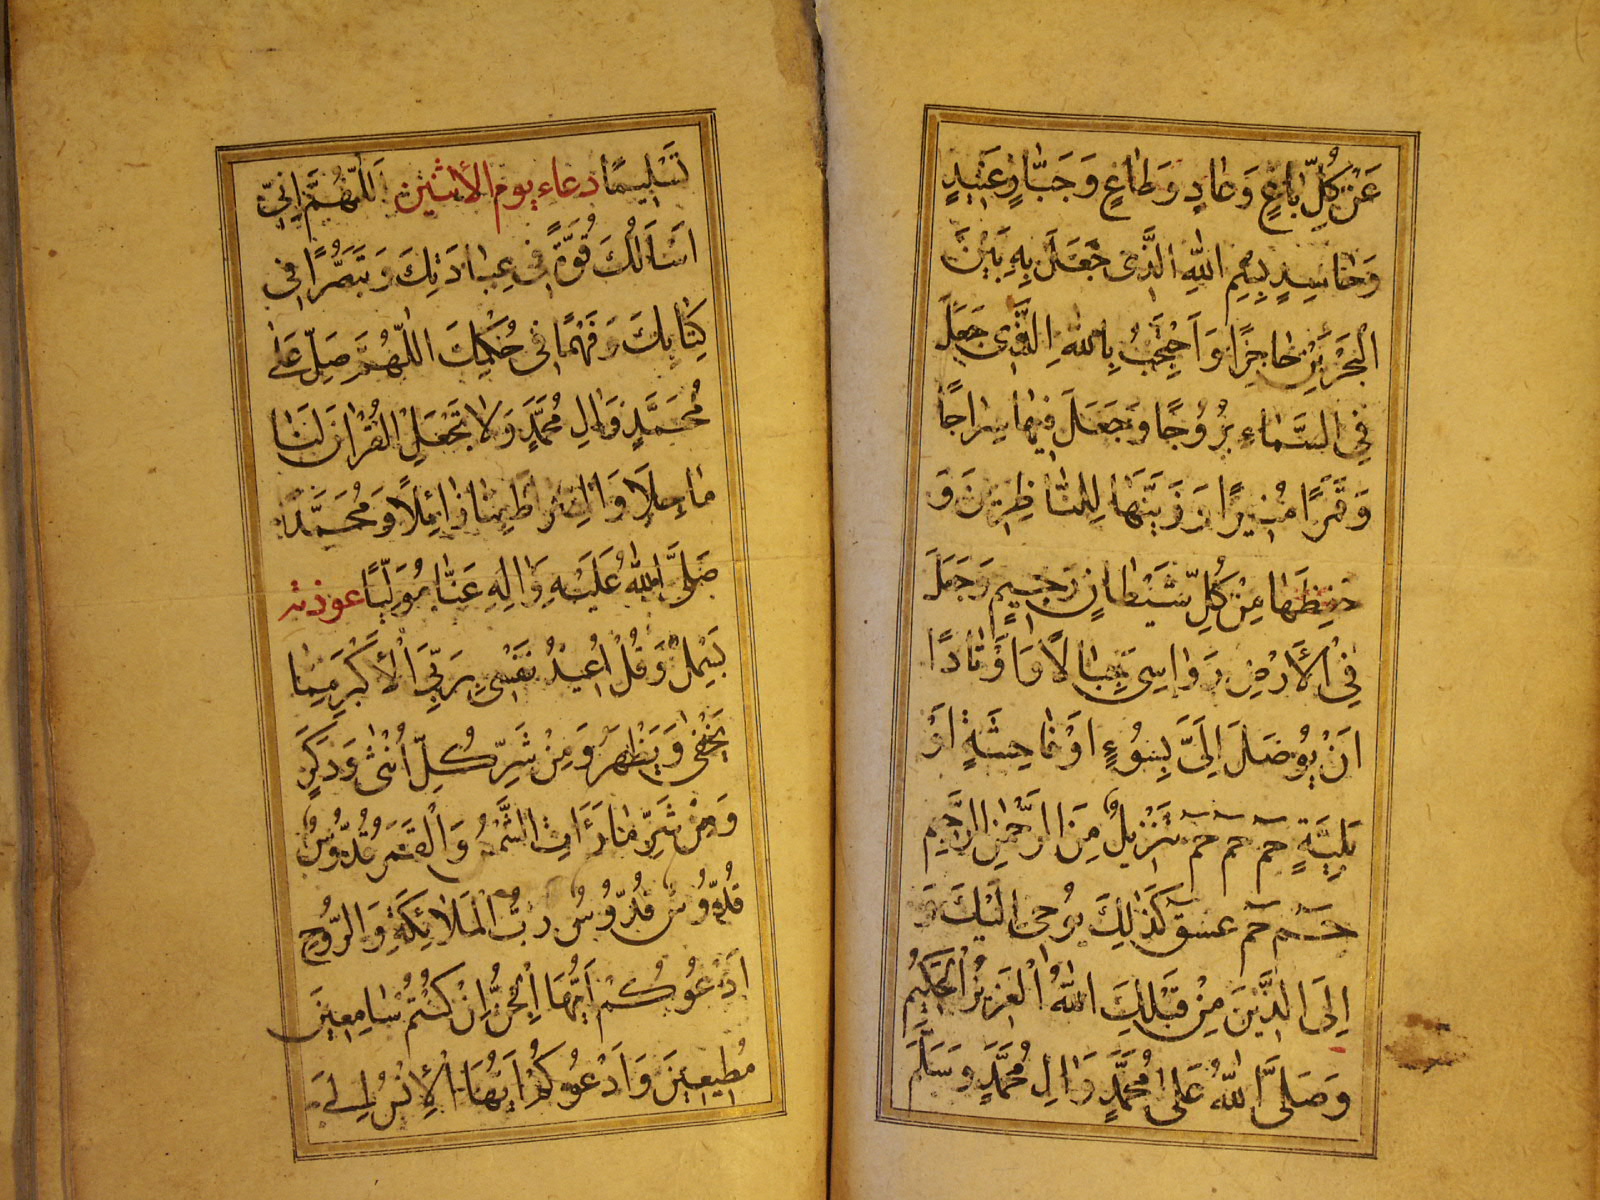 عَنْ كُلِّ باغٍ وَعادٍ وَطاغٍ وَجَبّارٍ وَعَنيدٍ
وَحاسِدٍ بِسْمِ اللهِ الَّذى جَعَلَ بِهِ بَيْنَ
الْبَحْرَيْنِ حاجِزًا وَاَحْتَجِبُ بِاللهِ الَّذى جَعَلَ
فِى السَّماءِ بُرُوجًا وَجَعَلَ فيها سِراجًا
وَقَمَرًا مُنيرًا وَزَيَّنَها لِلنّاظِرينَ وَ
حَفِظَها مِنْ كُلِّ شَيْطانٍ رَجيمٍ وَجَعَلَ
فِى الْأَرْضِ رَواسِىَ جِبالًا وَاَوْتادًا
اَنْ يُوصَلَ اِلَىَّ بِسُوءٍ اَوْ فاحِشَةٍ اَوْ
بَلِيَّةٍ حم حم حم تَنْزيلٌ مِنَ الرَّحْمنِ الرَّحيمِ
حم حم عسق كَذلِكَ يُوحى اِلَيْكَ وَ
اِلَى الَّذينَ مِنْ قَبْلِكَ اللهُ الْعَزيزُ الْحَكيمُ
وَصَلَّى اللهُ عَلى مُحَمَّدٍ وَالِ مُحَمَّدٍ وَسَلَّمَ
تَسْليمًا دعاء يوم الأثنين اَللّهُمَّ اِنّى
اَسْاَلُكَ قُوَّةً فى عِبادَتِكَ وَتَبَصُّرًا فى
كِتابِكَ وَفَهْمًا فى حُكْمِكَ اللّهُمَّ صَلِّ عَلى
مُحَمَّدٍ وَالِ مُحَمَّدٍ وَلا تَجْعَلِ الْقُرْانَ لَنا
ماحِلًا وَالصِّراطَ بِنا زائِلًا وَمُحَمَّدً
صَلَّى اللهُ عَلَيْهِ وَالِهِ عَنّا مُوَلِّيًا عوذته
بَسْمِلْ وَقُلْ اُعيذُ نَفْسى بِرَبِّىَ الْأَكْبَرِ مِمّا
يَخْفى وَيَظْهَرُ وَمِنْ شَرِّ كُلِّ اُنْثى وَذَكَرٍ
وَمِنْ شَرِّ ما رَأَتِ الشَّمْسُ وَالْقَمَرُ قُدُّوسٌ
قُدُّوسٌ قُدُّوسٌ رَبُّ الْمَلائِكَةِ وَالرُّوحِ
اَدْعُوكُمْ اَيُّهَا الْجِنُّ اِنْ كُنْتُمْ سامِعينَ
مُطيعينَ وَاَدْعُوكُمْ اَيُّهَا الْأِنْسُ اِلَى